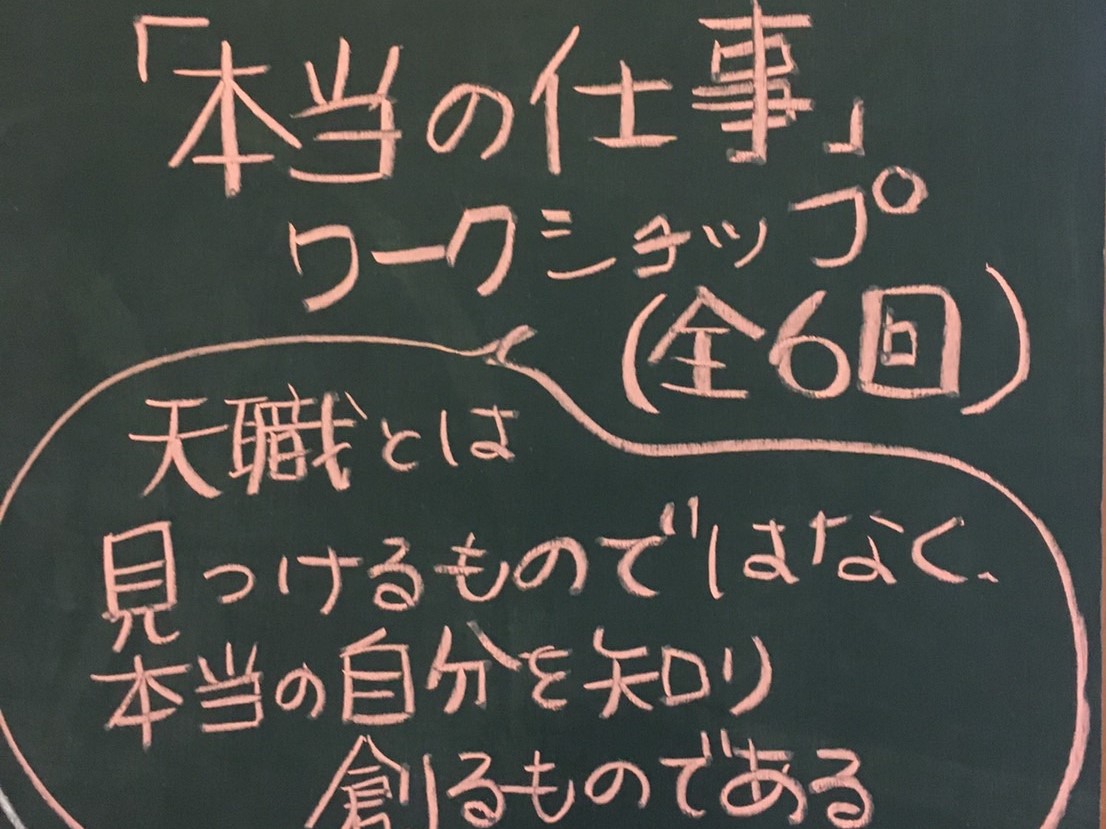 「本当の仕事」
ワークショップ
(全6回)
天職とは
見つけるものではなく、
本当の自分を知り
創るものである